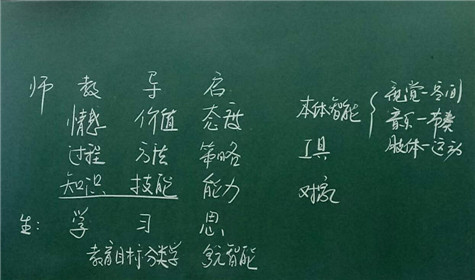 师 教 导 启
情感 价值 态度
过程 方法 策略
知识 技能 能力
生: 学 习 思
教育目标分类学 多元智能
本体智能
视觉—空间
音乐—节奏
肢体—运动
工具
对象